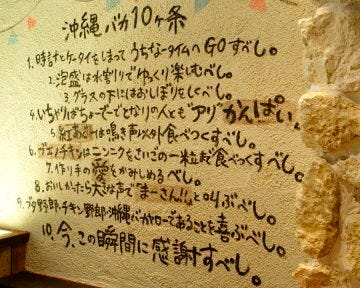 沖縄バカ10ヶ条
1.時計とケータイをしまってうちなータイムへGOすべし。
2.泡盛は水割りでゆっくり楽しむべし。
3.グラスの下にはおしぼりをしくべし。
4.いちゃりばちょーでーでとなりの人とも"アリ"かんぱい。
5.紅あぐーは鳴き声以外食べつくすべし。
6.ヴェノムチキンはニンニクをさいごの一粒まで食べつくすべし。
7.作り手の愛をかみしめるべし。
8.おいしかったら大きな声で「まーさん!!」と叫ぶべし。
9.ブタ野郎・チキン野郎・沖縄バカヤローであることを喜ぶべし。
10.今、この瞬間に感謝すべし。